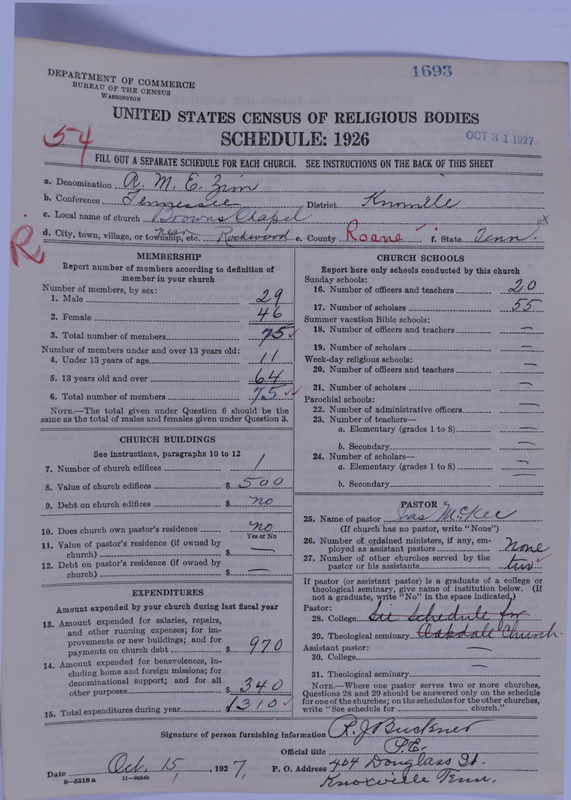 1693
DEPARTMENT OF COMMERCE
BUREAU OF THE CENSUS
WASHINGTON
UNITED STATES CENSUS OF RELIGIOUS BODIES
SCHEDULE: 1926
OCT 31 1927
54
FILL OUT A SEPARATE SCHEDULE FOR EACH CHURCH. SEE INSTRUCTIONS ON THE BACK OF THIS SHEET
a. Denomination A. M. E. Zion
b. Conference Tennessee District Knoxville
c. Local name of church Browns Chapel
d. City, town, village, or township, etc. near Rockwood e. County Roane f. State Tenn. x
R
MEMBERSHIP
Report number of members according to definition of
member in your church
Number of members, by sex:
1. Male 29
2. Female 46
3. Total number of members 75
Number of members under and over 13 years old:
4. Under 13 years of age 11
5. 13 years old and over 64
6. Total number of members 75
NOTE.—The total given under Question 6 should be the
same as the total of males and females given under Question 3.
CHURCH BUILDINGS
See instructions, paragraphs 10 to 12
7. Number of church edifices 1
8. Value of church edifices $ 500
9. Debt on church edifices $ no
10. Does church own pastor's residence no
Yes or No
11. Value of pastor's residence (if owned by
church) $ —
12. Debt on pastor's residence (if owned by
church) $ —
EXPENDITURES
Amount expended by your church during last fiscal year
13. Amount expended for salaries, repairs,
and other running expenses; for im-
provements or new buildings; and for
payments on church debt $ 970
14. Amount expended for benevolences, in-
cluding home and foreign missions; for
denominational support; and for all
other purposes $ 340
15. Total expenditures during year $ 1310
CHURCH SCHOOLS
Report here only schools conducted by this church
Sunday schools:
16. Number of officers and teachers 20
17. Number of scholars 55
Summer vacation Bible schools:
18. Number of officers and teachers —
19. Number of scholars —
Week-day religious schools:
20. Number of officers and teachers —
21. Number of scholars —
Parochial schools:
22. Number of administrative officers —
23. Number of teachers—
a. Elementary (grades 1 to 8) —
b. Secondary —
24. Number of scholars—
a. Elementary (grades 1 to 8) —
b. Secondary —
PASTOR
25. Name of pastor Jas McKee
(If church has no pastor, write "None")
26. Number of ordained ministers, if any, em-
ployed as assistant pastors None
27. Number of other churches served by the
pastor or his assistants two
If pastor (or assistant pastor) is a graduate of a college or
theological seminary, give name of institution below. (If
not a graduate, write "No" in the space indicated.)
Pastor:
28. College See Schedule for
29. Theological seminary Oakdale Church
Assistant pastor:
30. College —
31. Theological seminary —
NOTE.—Where one pastor serves two or more churches,
Questions 28 and 29 should be answered only on the schedule
for one of the churches; on the schedules for the other churches,
write "See schedule for church."
Signature of person furnishing information R. J. Buckner
Official title P.E.
Date Oct. 15, 1927, P. O. Address 404 Douglass St.
8—5318 a
Knoxville Tenn.